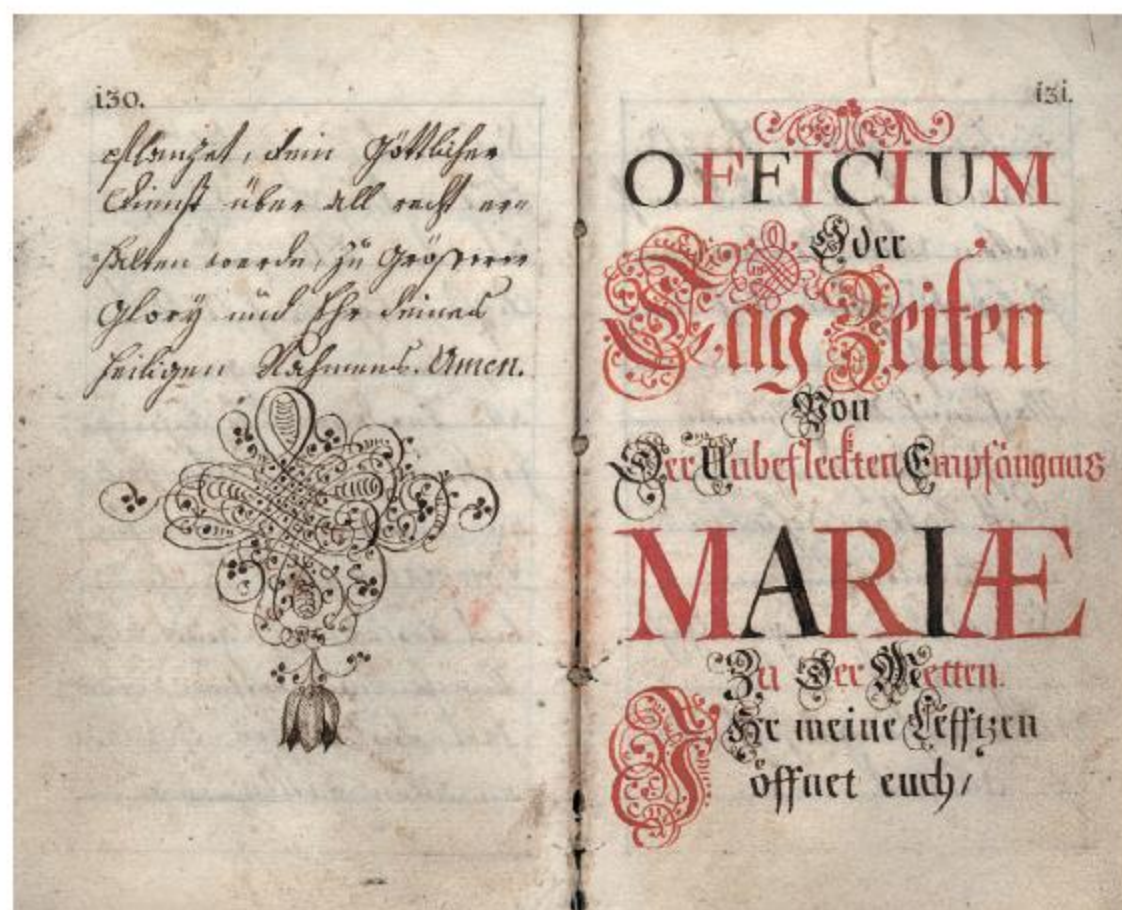 130.
pflanzet, dein Göttlicher
Dienst über all recht er=
halten werde, zu Grösserer
Glory und Ehr deines
heiligen Nahmens. Amen.
131.
OFFICIUM
Oder
Tag Zeiten
Von
Der Unbefleckten Empfängnus
MARIÆ
Zu Der Metten.
IHr meine Lefftzen
öffnet euch/